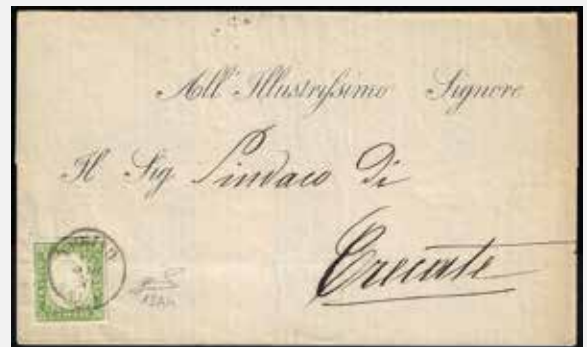 All' Illustrissimo Signore
Il Sig. Sindaco Di
Trecate